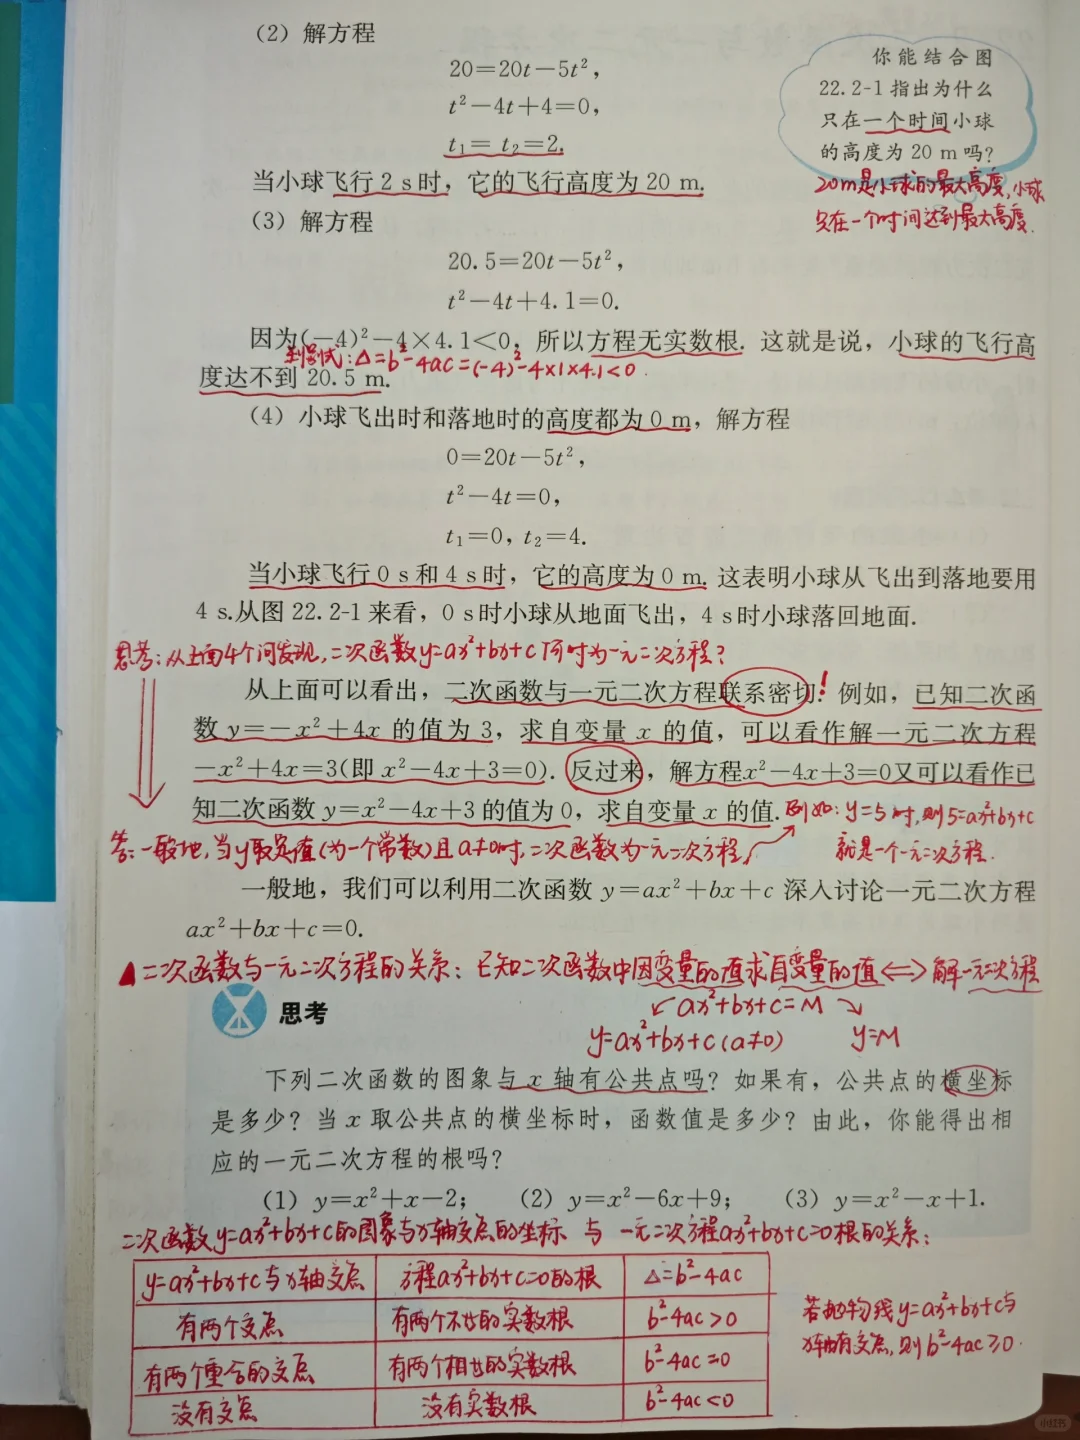 (2) 解方程
20=20t-5t²,
t²-4t+4=0,
t₁= t₂=2.
当小球飞行 2 s 时，它的飞行高度为 20 m.
你能结合图
22.2-1 指出为什么
只在一个时间小球
的高度为 20 m 吗？
20m是小球的最大高度,小球
只在一个时间达到最大高度.
(3) 解方程
20.5=20t-5t²,
t²-4t+4.1=0.
因为(-4)²-4×4.1<0，所以方程无实数根. 这就是说，小球的飞行高
判别式:△=b²-4ac=(-4)²-4×1×4.1<0.
度达不到 20.5 m.
(4) 小球飞出时和落地时的高度都为 0 m，解方程
0=20t-5t²,
t²-4t=0,
t₁=0, t₂=4.
当小球飞行 0 s 和 4 s 时，它的高度为 0 m. 这表明小球从飞出到落地要用
4 s.从图 22.2-1 来看，0 s 时小球从地面飞出，4 s 时小球落回地面.
思考:从上面4个问发现,二次函数y=ax²+bx+c何时为一元二次方程?
从上面可以看出，二次函数与一元二次方程联系密切!例如，已知二次函
数 y=-x²+4x 的值为 3，求自变量 x 的值，可以看作解一元二次方程
-x²+4x=3(即 x²-4x+3=0). 反过来，解方程x²-4x+3=0又可以看作已
知二次函数 y=x²-4x+3 的值为 0，求自变量 x 的值.
例如:y=5时,则5=ax²+bx+c
就是一个一元二次方程.
答:一般地,当y取定值(为一个常数)且a≠0时,二次函数为一元二次方程.
一般地，我们可以利用二次函数 y=ax²+bx+c 深入讨论一元二次方程
ax²+bx+c=0.
▲二次函数与一元二次方程的关系:已知二次函数中因变量的值求自变量的值⟺解一元二次方程
↙ax²+bx+c=M↘
y=ax²+bx+c(a≠0) y=M
思考
下列二次函数的图象与 x 轴有公共点吗？如果有，公共点的横坐标
是多少？当 x 取公共点的横坐标时，函数值是多少？由此，你能得出相
应的一元二次方程的根吗？
(1) y=x²+x-2; (2) y=x²-6x+9; (3) y=x²-x+1.
二次函数y=ax²+bx+c的图象与x轴交点的坐标 与 一元二次方程ax²+bx+c=0根的关系:
y=ax²+bx+c与x轴交点 方程ax²+bx+c=0的根 △=b²-4ac
有两个交点 有两个不等的实数根 b²-4ac>0
有两个重合的交点 有两个相等的实数根 b²-4ac=0
没有交点 没有实数根 b²-4ac<0
若抛物线y=ax²+bx+c与
x轴有交点,则b²-4ac≥0.
小红书